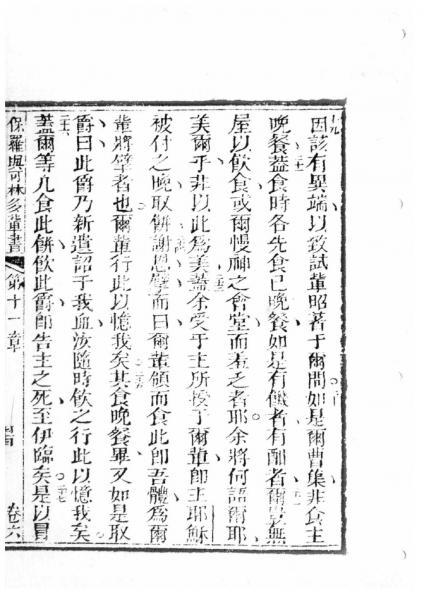 因該有異端以致試輩昭著于爾間如是爾曹集非食主
晚餐葢食時各先食己晚餐如是有饑者有酗者爾豈無
屋以飲食或爾慢神之會堂而羞乏者耶余將何語爾耶
美爾乎非以此為美葢余受于主所授于爾輩即主耶穌
被付之晚取餅謝恩擘而曰爾輩領而食此即吾體為爾
輩將擘者也爾輩行此以憶我矣其食晚餐畢又如是取
爵曰此爵乃新遺詔于我血汝隨時飲之行此以憶我矣
葢爾等凡食此餅飲此爵即告主之死至伊臨矣是以冒
保羅與可林多輩書 第十一章 卷六